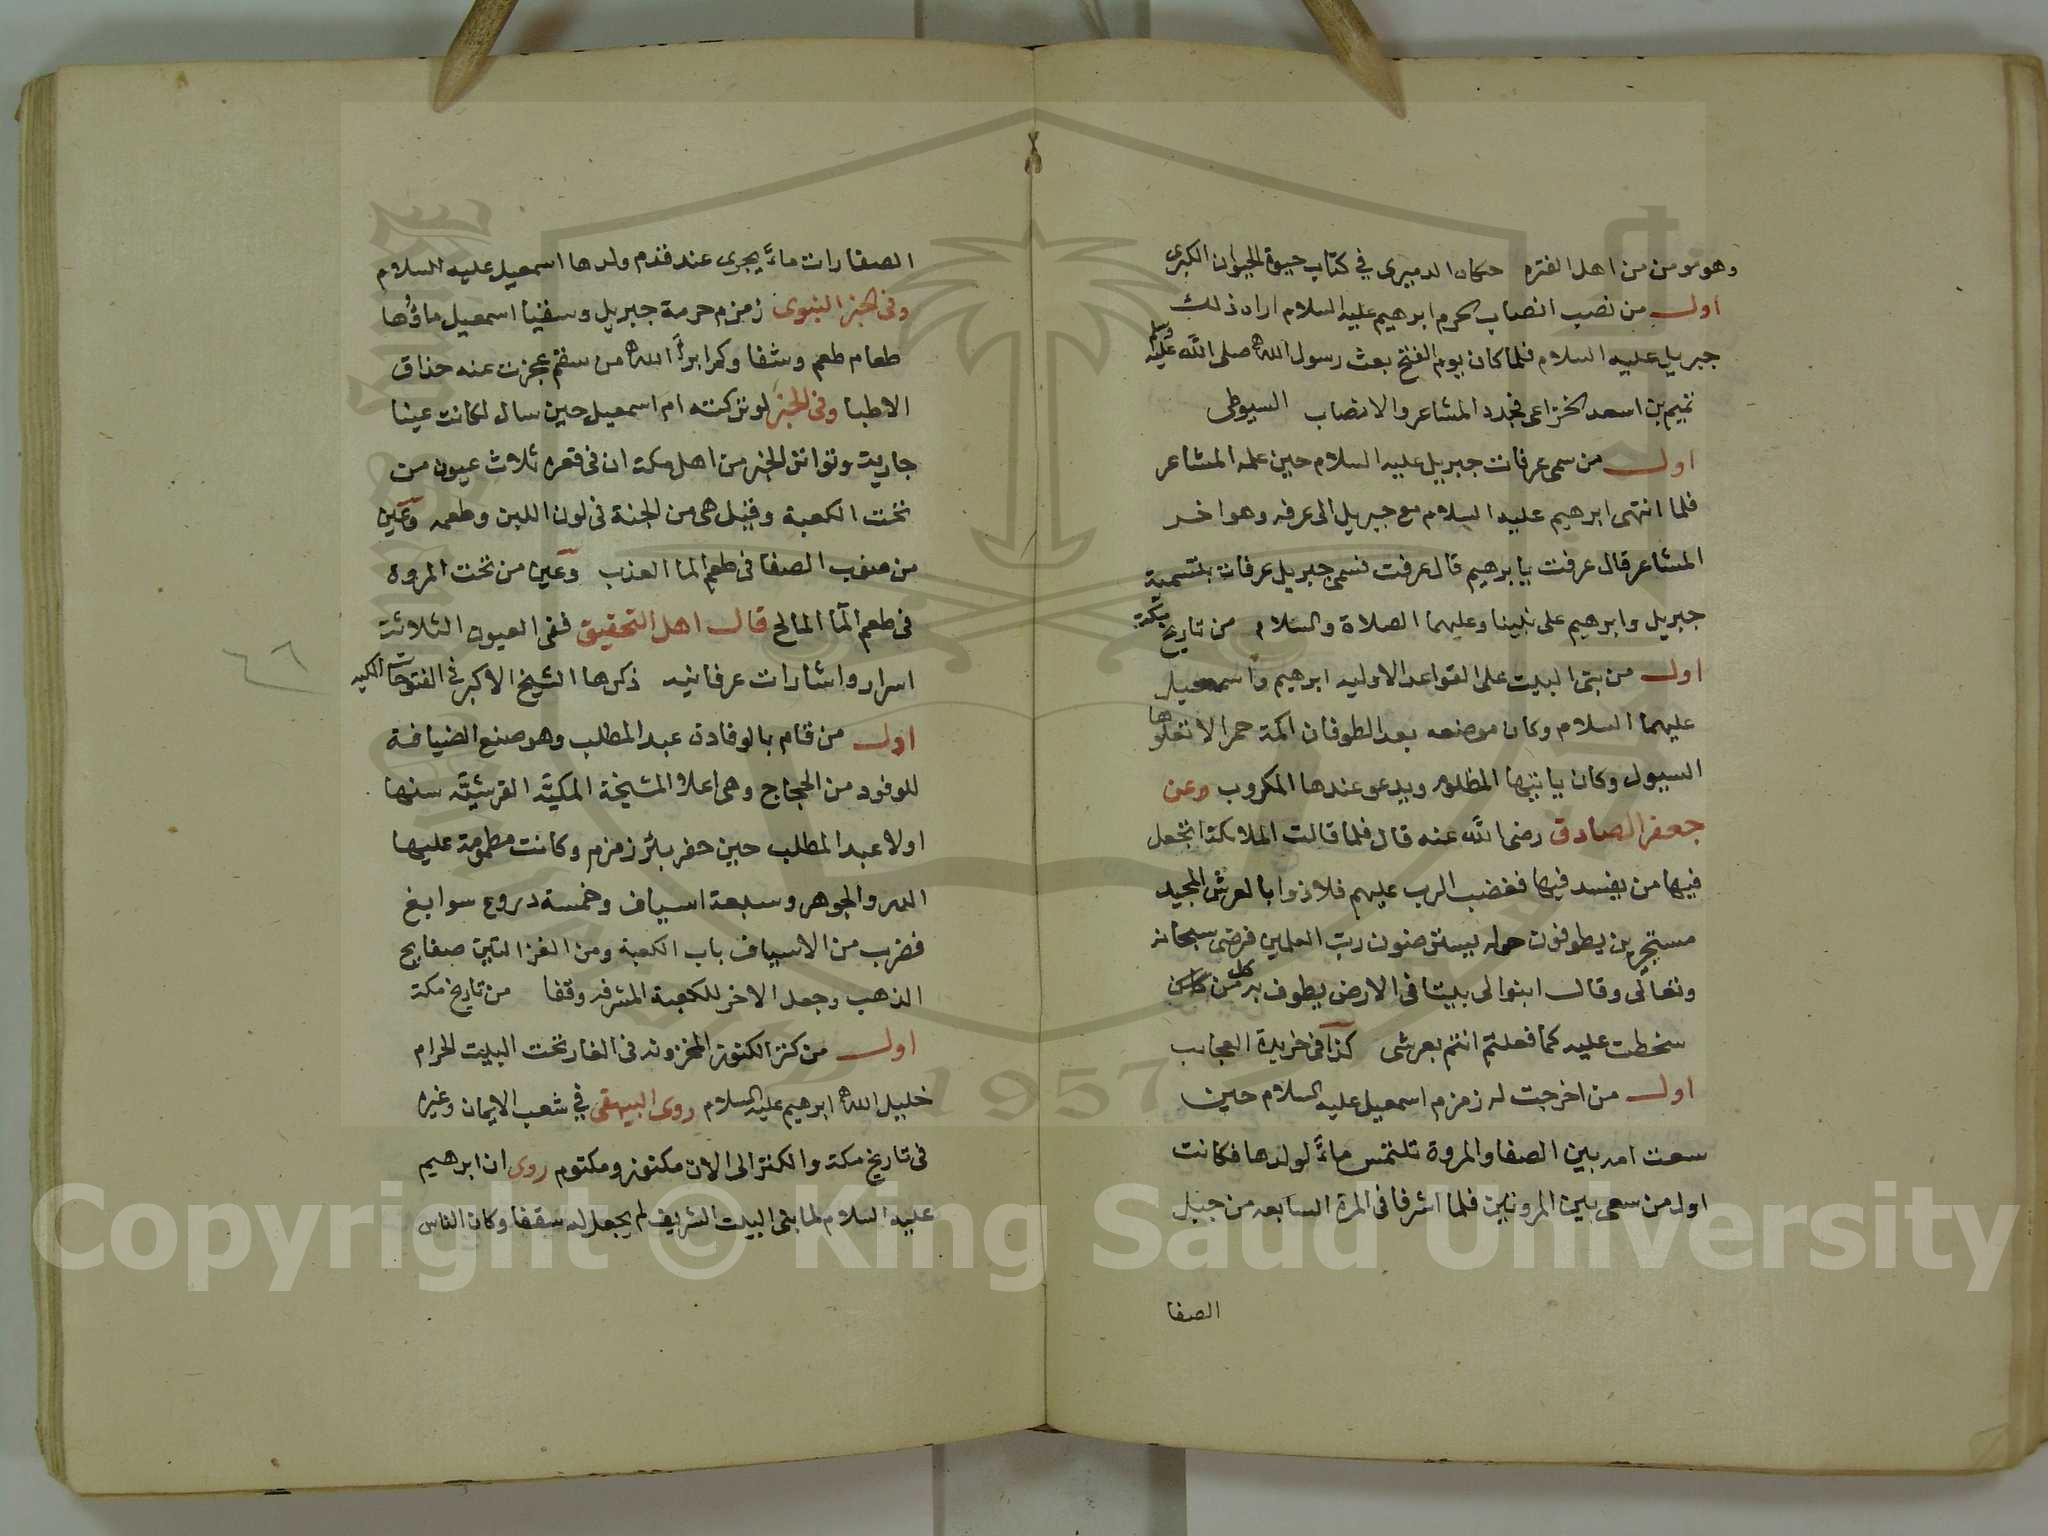 وهو مومن من اهل الفترة حكاه الدميرى في كتاب حيوة الحيوان الكبرى
اول من نصب انصاب الحرم ابرهيم عليه السلام اراه ذلك
جبريل عليه السلام فلما كان يوم الفتح بعث رسول الله صلى الله عليه وسلم
تميم بن اسعد الخزاعى فجدد المشاعر والانصاب السيوطى
اول من سمى عرفات جبريل عليه السلام حين علمه المشاعر
فلما انتهى ابرهيم عليه السلام مع جبريل الى عرفه وهو اخر
المشاعر قال عرفت يا ابرهيم قال عرفت فسمى جبريل عرفات بتسمية
جبريل وابرهيم على نبينا وعليهما الصلاة والسلام من تاريخ مكة
اول من بنى البيت على القواعد الاوليه ابرهيم واسمعيل
عليهما السلام وكان موضعه بعد الطوفان اكمة حمرا لا تعلوها
السيول وكان ياتيها المظلوم ويدعو عندها المكروب وعن
جعفر الصادق رضى الله عنه قال فلما قالت الملائكة اتجعل
فيها من يفسد فيها فغضب الرب عليهم فلاذوا بالعرش المجيد
مستجيرين يطوفون حوله يسترضون رب العلمين فرضى سبحانه
وتعالى وقال ابنوا لى بيتا فى الارض يطوف به كل من
سخطت عليه كما فعلتم انتم بعرشى كذا فى خريدة العجايب
اول من اخرجت له زمزم اسمعيل عليه السلام حين
سعت امه بين الصفا والمروة تلتمس ماء لولدها فكانت
اول من سعى بين المروتين فلما اشرفا فى المرة السابعه من جبل
الصفا
الصفا رات ماء يجرى عند قدم ولدها اسمعيل عليه السلام
وفى الخبر النبوى زمزم حرمة جبريل وسقيا اسمعيل ماؤها
طعام طعم وشفا وكم ابرأ الله من سقم عجزت عنه حذاق
الاطبا وفى الخبر لو تركته ام اسمعيل حين سال لكانت عينا
جاريت وتواتر الخبر من اهل مكة ان فى قعره ثلاث عيون من
تحت الكعبة وقيل هى من الجنة فى لون اللبن وطعمه وعين
من صوب الصفا فى طعم الما العذب وعين من تحت المروة
فى طعم الما المالح قال اهل التحقيق ففى العيون الثلاثة
اسرار واشارات عرفانيه ذكرها الشيخ الاكبر فى الفتوحات المكيه
٤٦
اول من قام بالوفادة عبد المطلب وهو صنع الضيافة
للوفود من الحجاج وهى اعلا المشيخة المكيّة القرشيّة سنها
اولا عبد المطلب حين حفر بئر زمزم وكانت مطمومة عليها
الدر والجوهر وسبعة اسياف وخمسة دروع سوابغ
فضرب من الاسياف باب الكعبة ومن الغزالتين صفايح
الذهب وجعل الاخر للكعبة المشرفه وقفا من تاريخ مكة
اول من كنز الكنوز المخزونه فى الغار تحت البيت الحرام
خليل الله ابرهيم عليه السلام روى البيهقى في شعب الايمان وغيره
فى تاريخ مكة والكنز الى الان مكنوز ومكتوم روى ان ابرهيم
عليه السلام لما بنى البيت الشريف لم يجعل له سقفا وكان الناس
1957
Copyright © King Saud University